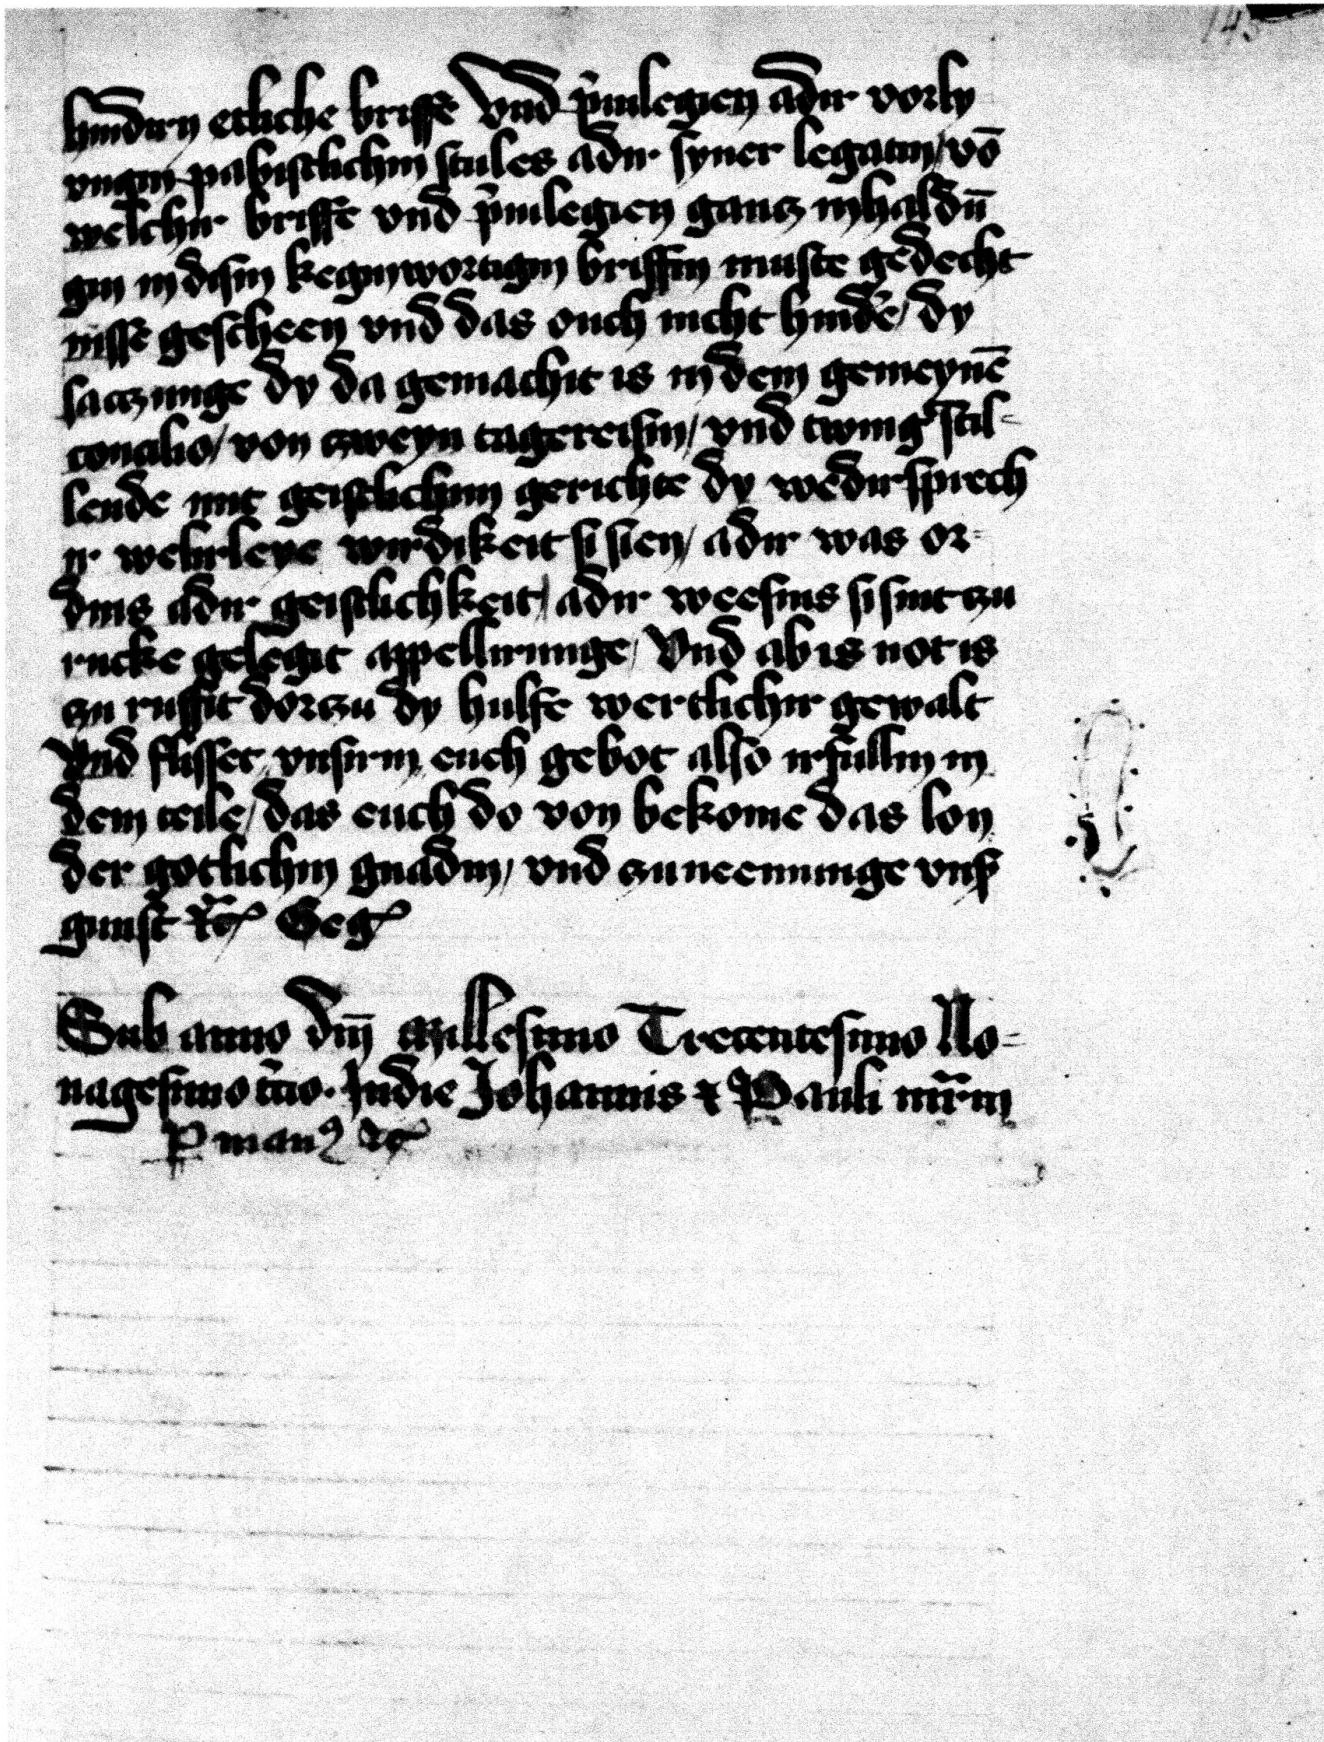 145
hindirn etliche briffe Vnd p̄uilegien adir vorly
ungin pabistlichin stules adir syner legatin / vō
welchir briffe vnd p̄uilegien gantz inhaldūn
gin in disin keginwortigin briffin muste gedecht
nisse gescheen vnd das ouch nicht hindˀe / dy
satczunge dy da gemachit is in dem gemeynē
concilio / von czweyn tagereisin / vnd twingˀ stil-
lende mit geistlichim gerichte dy wedirsprech
ir welirleye wirdikeit si sien / adir was or-
dins adir geistlichkeit / adir weesins si sint czu
rucke gelegit appellirunge / Vnd ab is not is
czu ruffit dorczu dy hulfe wertlichir gewalt
Vnd flisset vnsirm euch gebot also irfullin in
dem teile / das euch do von bekome das lon
der gotlichin gnadin / vnd czuneemunge vnsˀ
gunst ⁊c̃ Gegˀ
Sub anno dn̄i Millesimo Trecentesimo No-
nagesimo tˀcio. In die Johannis ⁊ Pauli mr̄m
ꝑ manꝰ ⁊c̃